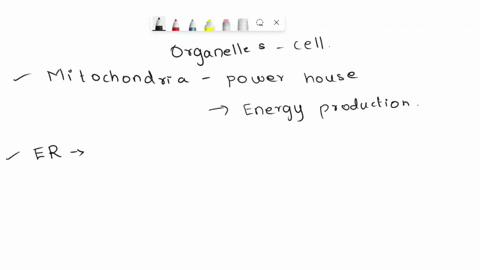 Organelles - cell.
✓ Mitochondria - power house
→ Energy production.
✓ ER →